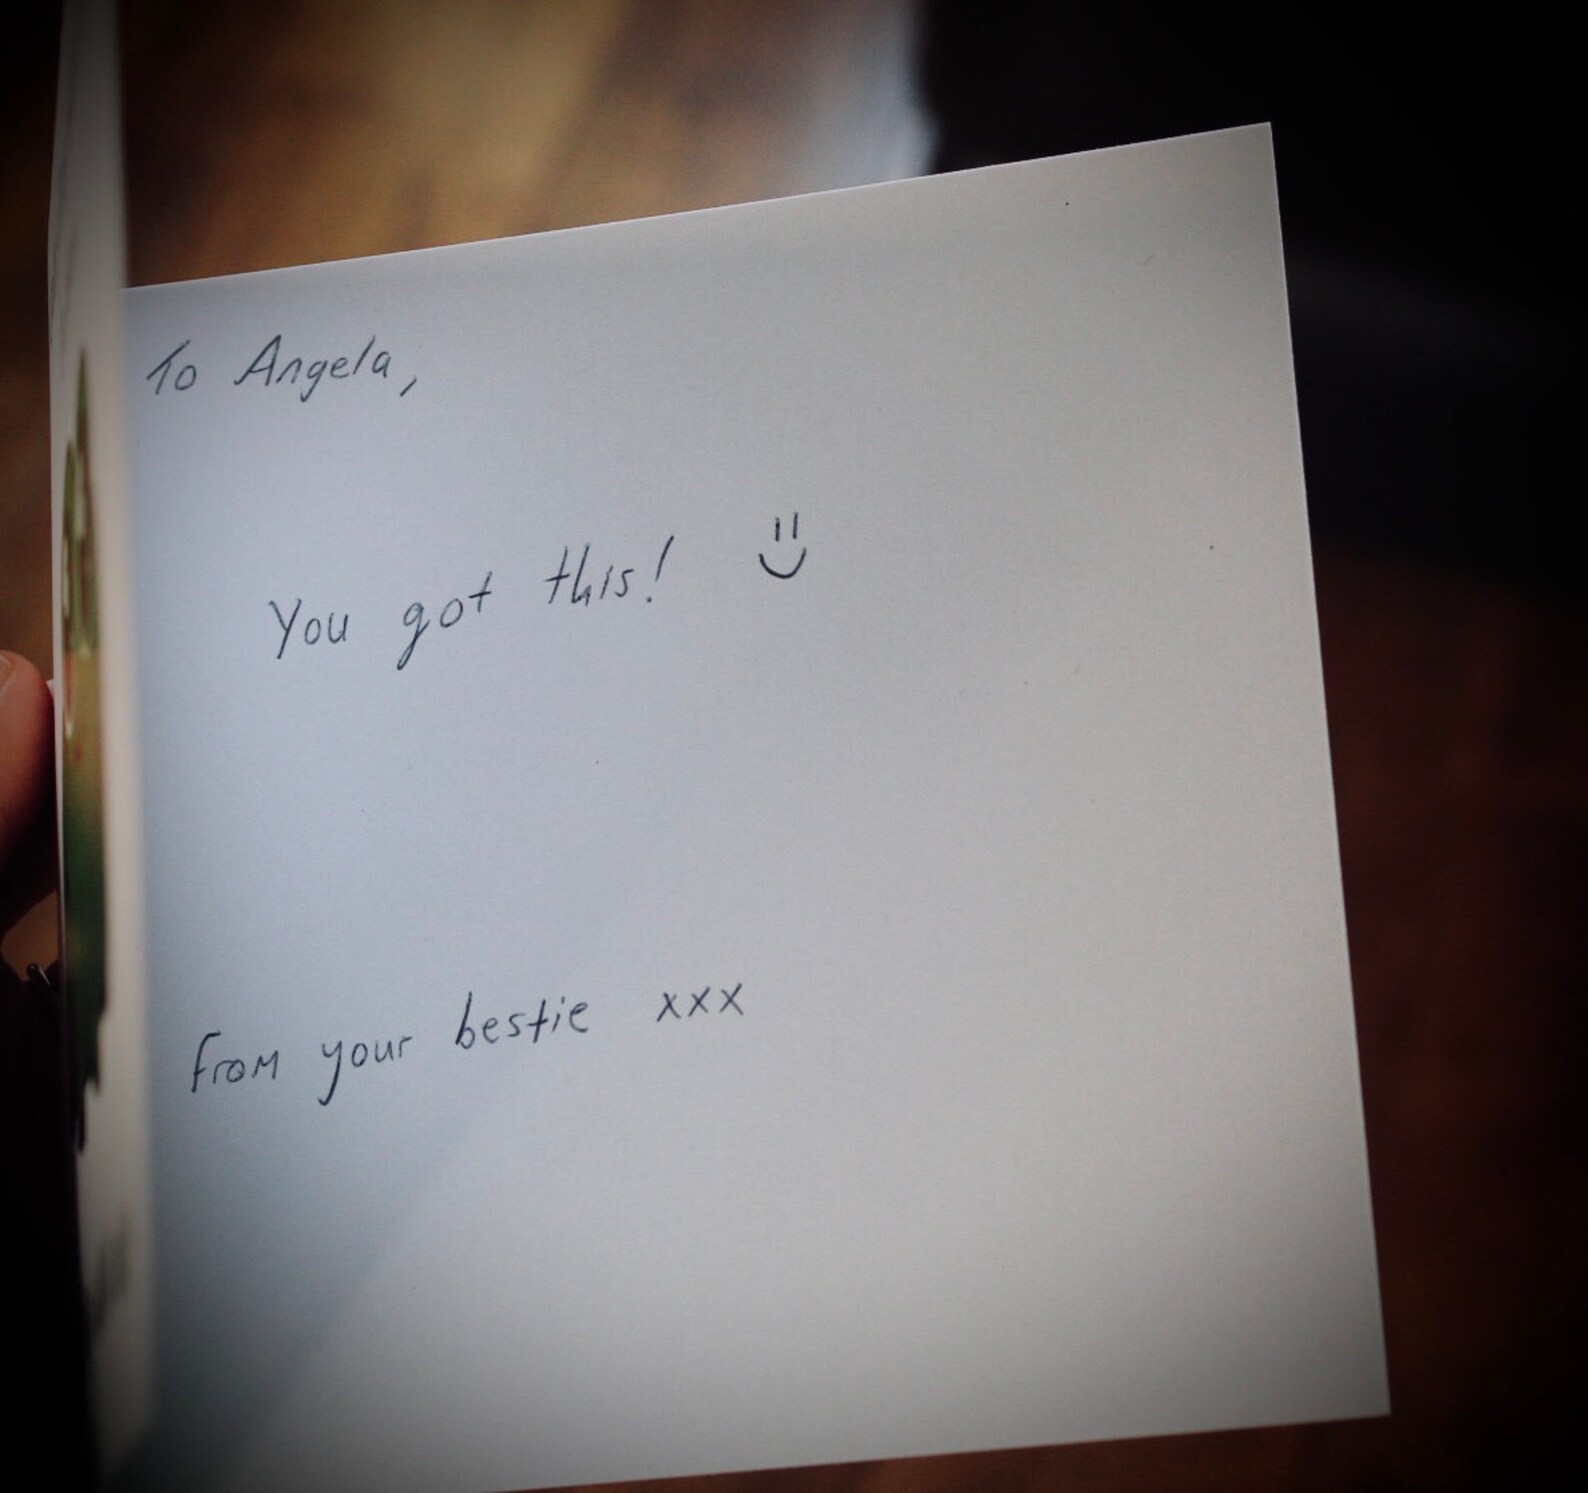 To Angela,
You got this! =)
From your bestie xxx